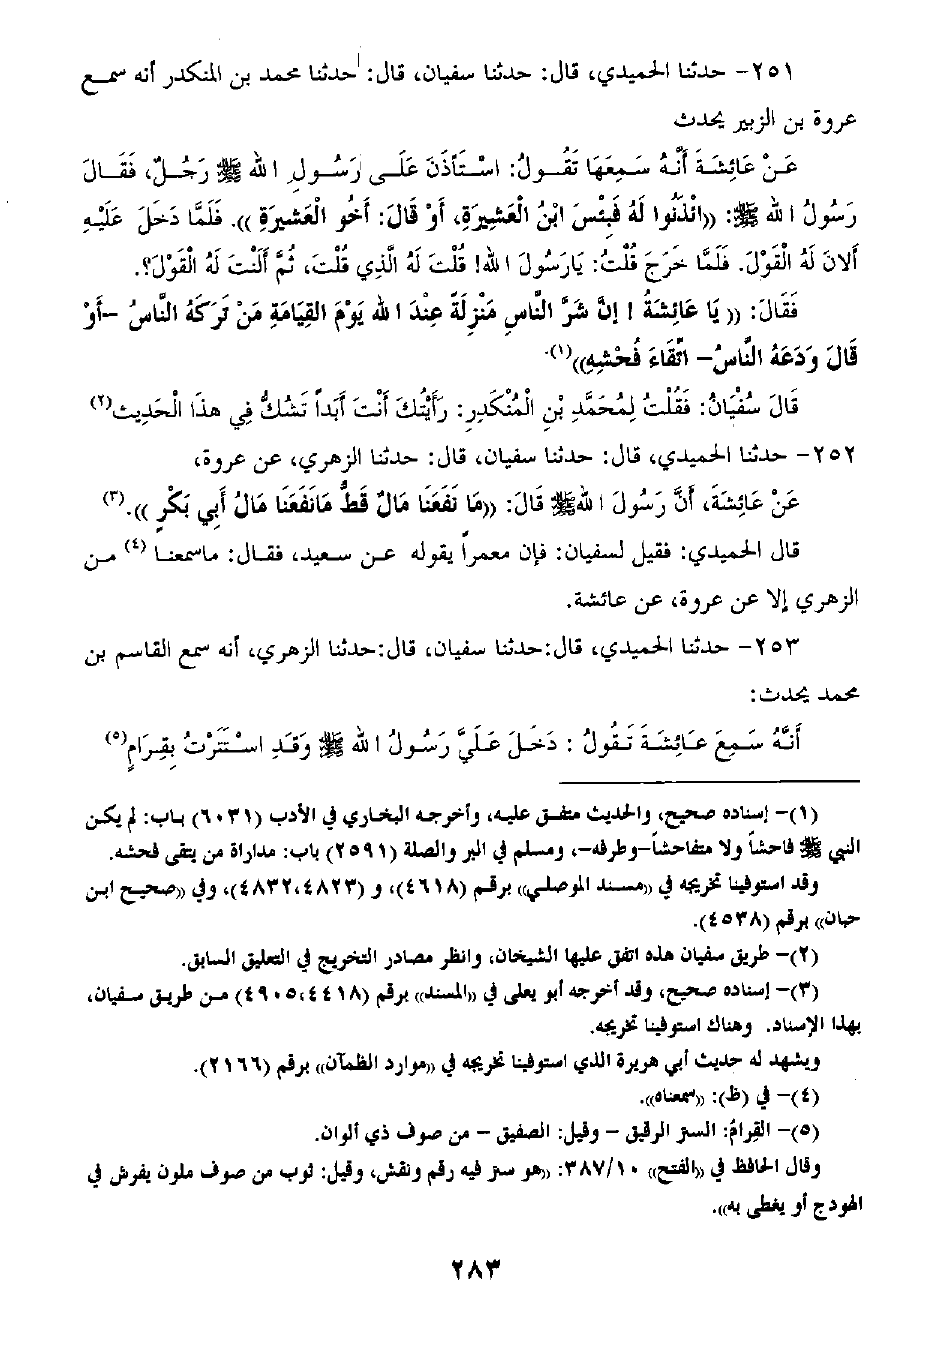 ٢٥١- حدثنا الحميدي، قال: حدثنا سفيان، قال: حدثنا محمد بن المنكدر أنه سمع
عروة بن الزبير يحدث
عَنْ عَائِشَةَ أَنَّهُ سَمِعَهَا تَقُولُ: اسْتَأذَنَ عَلَى رَسُولِ اللهِ ﷺ رَجُلٌ، فَقَالَ
رَسُولُ اللهِ ﷺ: ((ائْذَنُوا لَهُ فَبِئْسَ ابْنُ الْعَشِيرَةِ، أوْ قَالَ: أَخُو الْعَشِيرَةِ )). فَلَمَّا دَخَلَ عَلَيْهِ
ألاَنَ لَهُ الْقَوْلَ. فَلَمَّا خَرَجَ قُلْتُ: يَارَسُولَ اللهِ! قُلْتَ لَهُ الَّذِي قُلْتَ، ثُمَّ ألَنْتَ لَهُ الْقَوْلَ؟.
فَقَالَ: (( يَا عَائِشَةُ ! إنَّ شَرَّ النَّاسِ مَنْزِلَةً عِنْدَ اللهِ يَوْمَ القِيَامَةِ مَنْ تَرَكَهُ النَّاسُ -أوْ
قَالَ وَدَعَهُ النَّاسُ- اتِّقَاءَ فُحْشِهِ))(١).
قَالَ سُفْيَانُ: فَقُلْتُ لِمُحَمَّدِ بْنِ الْمُنْكَدِرِ: رَأيْتُكَ أَنْتَ أَبَداً تَشُكُّ فِي هذَا الْحَدِيثِ(٢)
٢٥٢- حدثنا الحميدي، قال: حدثنا سفيان، قال: حدثنا الزهري، عن عروة،
عَنْ عَائِشَةَ، أَنَّ رَسُولَ اللهِ ﷺ قَالَ: ((مَا نَفَعَنَا مَالٌ قَطُّ مَانَفَعَنَا مَالُ أبِي بَكْرٍ )).(٣)
قال الحميدي: فقيل لسفيان: فإن معمراً يقوله عن سعيد، فقال: ماسمعنا (٤) من
الزهري إلا عن عروة، عن عائشة.
٢٥٣- حدثنا الحميدي، قال:حدثنا سفيان، قال:حدثنا الزهري، أنه سمع القاسم بن
محمد يحدث:
أَنَّهُ سَمِعَ عَائِشَةَ تَقُولُ : دَخَلَ عَلَيَّ رَسُولُ اللهِ ﷺ وَقَدِ اسْتَتَرْتُ بِقِرَامٍ(٥)
(١)- إسناده صحيح، والحديث متفق عليه، وأخرجه البخاري في الأدب (٦٠٣١) باب: لم يكن
النبي ﷺ فاحشاً ولا متفاحشاً-وطرفه-، ومسلم في البر والصلة (٢٥٩١) باب: مداراة من يتقى فحشه.
وقد استوفينا تخريجه في ((مسند الموصلي)) برقم (٤٦١٨)، و (٤٨٢٣،٤٨٣٢)، وفي ((صحيح ابن
حبان)) برقم (٤٥٣٨).
(٢)- طريق سفيان هذه اتفق عليها الشيخان، وانظر مصادر التخريج في التعليق السابق.
(٣)- إسناده صحيح، وقد أخرجه أبو يعلى في ((المسند)) برقم (٤٤١٨،٤٩٠٥) من طريق سفيان،
بهذا الإسناد. وهناك استوفينا تخريجه.
ويشهد له حديث أبي هريرة الذي استوفينا تخريجه في ((موارد الظمآن)) برقم (٢١٦٦).
(٤)- في (ظ): ((سمعناه)).
(٥)- القِرامُ: الستر الرقيق - وقيل: الصفيق - من صوف ذي ألوان.
وقال الحافظ في ((الفتح)) ٣٨٧/١٠: ((هو ستر فيه رقم ونقش، وقيل: ثوب من صوف ملون يفرش في
الهودج أو يغطى به)).
٢٨٣